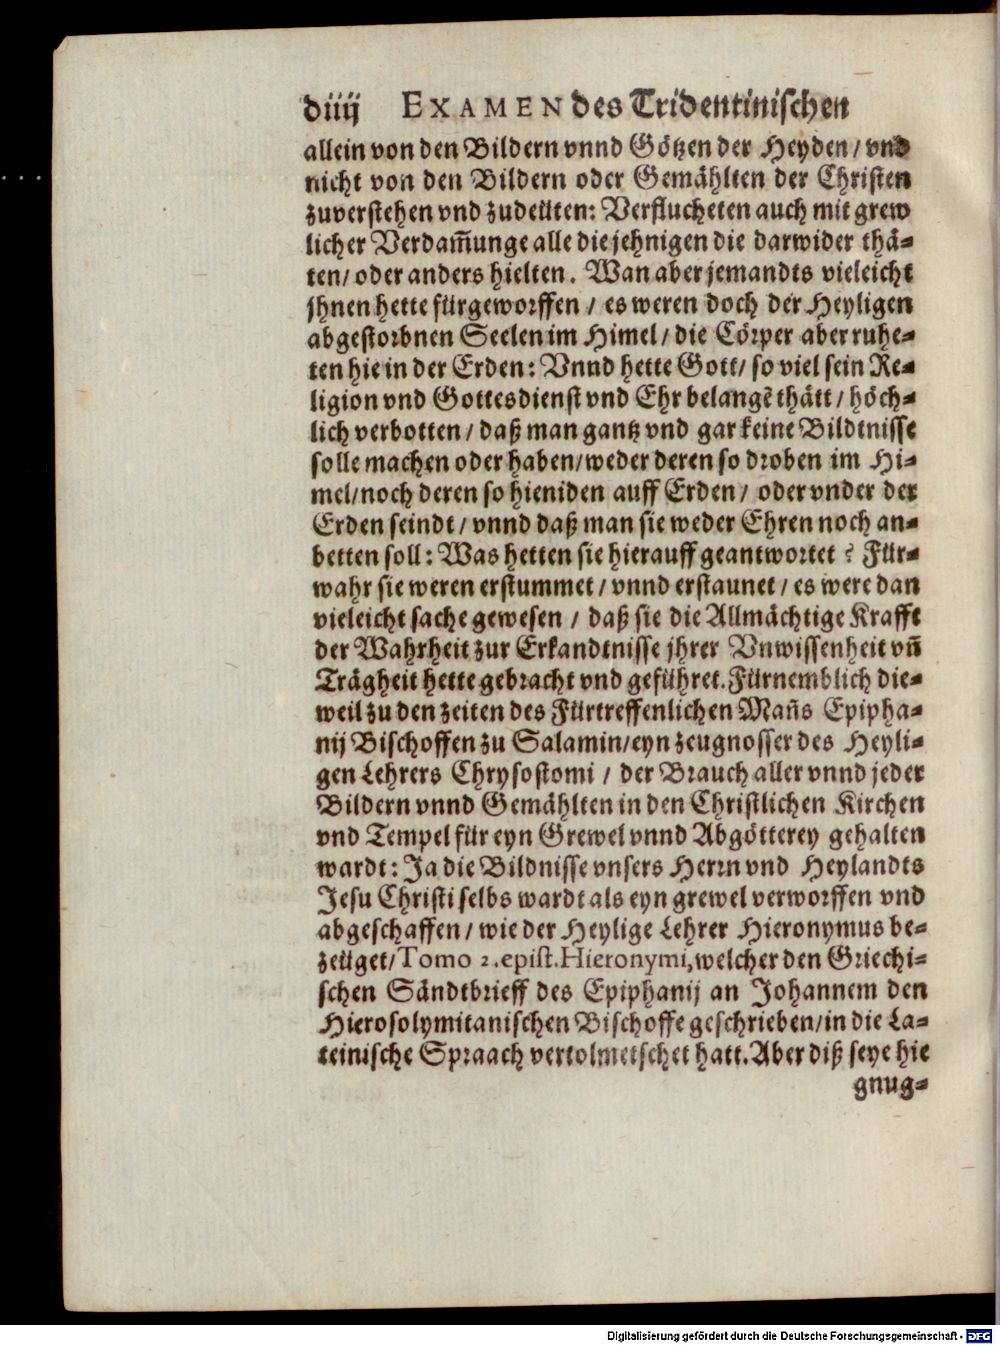 diiij EXAMEN des Tridentinischen
allein von den Bildern vnnd Götzen der Heyden / vnd
nicht von den Bildern oder Gemählten der Christen
zuverstehen vnd zudeüten: Verflucheten auch mit grew
licher Verdam̃unge alle die jehnigen die darwider thä-
ten / oder anders hielten. Wan aber jemandts vieleicht
jhnen hette fürgeworffen / es weren doch der Heyligen
abgestorbnen Seelen im Himel / die Cörper aber ruhe-
ten hie in der Erden: Vnnd hette Gott / so viel sein Re-
ligion vnd Gottesdienst vnd Ehr belangẽ thätt / höch-
lich verbotten / daß man gantz vnd gar keine Bildtnisse
solle machen oder haben / weder deren so droben im Hi-
mel / noch deren so hieniden auff Erden / oder vnder der
Erden seindt / vnnd daß man sie weder Ehren noch an-
betten soll: Was hetten sie hierauff geantwortet? Für-
wahr sie weren erstummet / vnnd erstaunet / es were dan
vieleicht sache gewesen / daß sie die Allmächtige Krafft
der Wahrheit zur Erkandtnisse jhrer Vnwissenheit vñ
Trägheit hette gebracht vnd geführet. Fürnemblich die-
weil zu den zeiten des Fürtreffenlichen Mañs Epipha-
nij Bischoffen zu Salamin / eyn zeugnosser des Heyli-
gen Lehrers Chrysostomi / der Brauch aller vnnd jeder
Bildern vnnd Gemählten in den Christlichen Kirchen
vnd Tempel für eyn Grewel vnnd Abgötterey gehalten
wardt: Ja die Bildnisse vnsers Herrn vnd Heylandts
Jesu Christi selbs wardt als eyn grewel verworffen vnd
abgeschaffen / wie der Heylige Lehrer Hieronymus be-
zeüget / Tomo 2. epist. Hieronymi, welcher den Griechi-
schen Sändtbrieff des Epiphanij an Johannem den
Hierosolymitanischen Bischoffe geschrieben / in die La-
teinische Spraach vertolmetschet hatt. Aber diß seye hie
gnug-
Digitalisierung gefördert durch die Deutsche Forschungsgemeinschaft - DFG